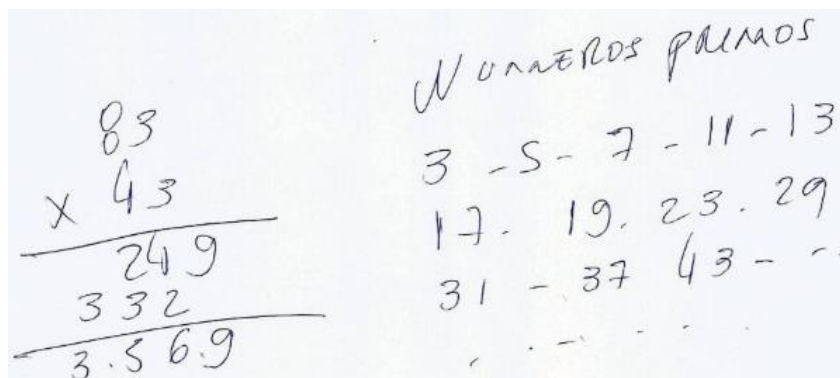 83
x 43
249
332
3.569
Numeros primos
3 - 5 - 7 - 11 - 13
17. 19. 23. 29
31 - 37 43 - -